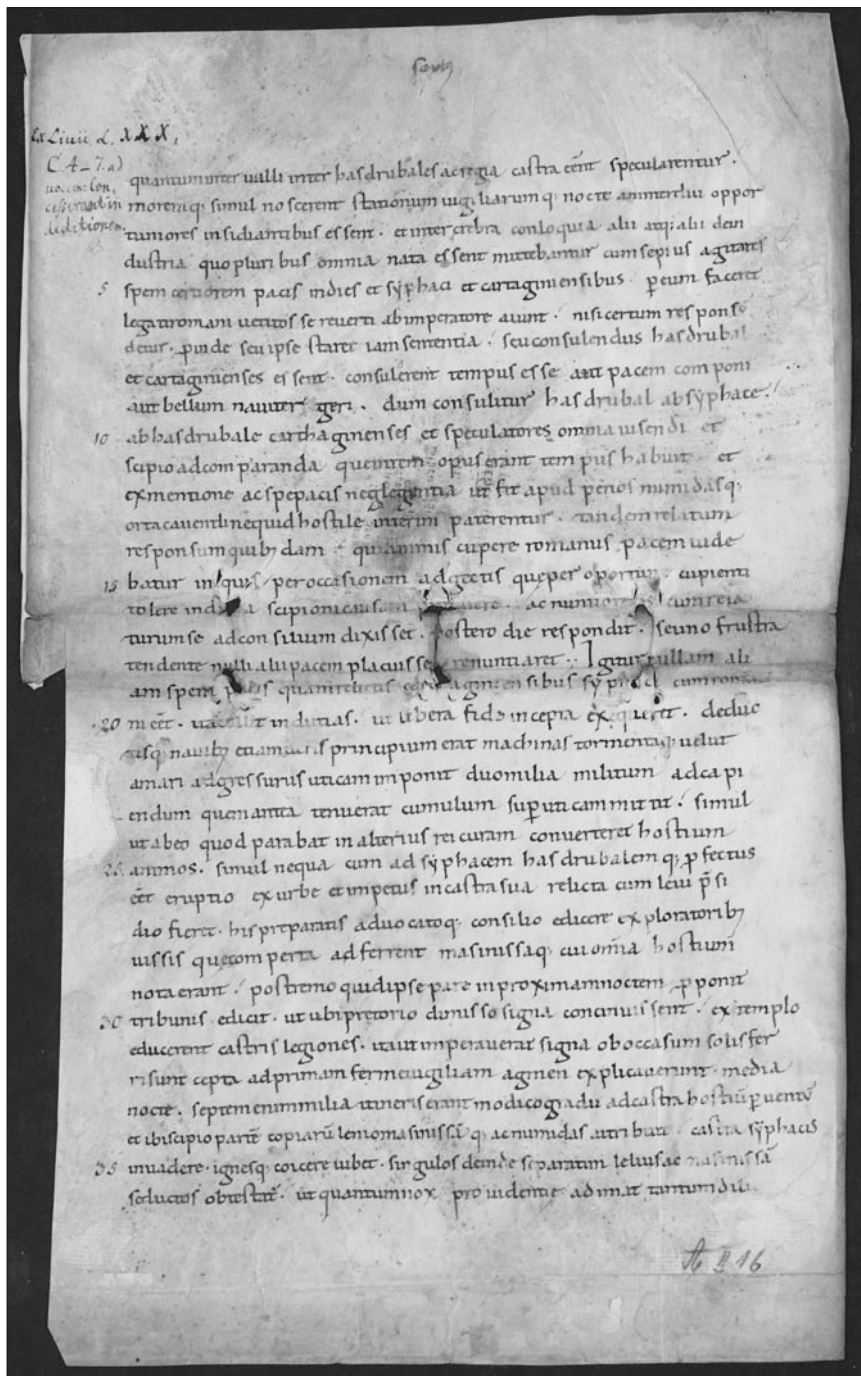 Ex Liuii L. XXX,
C. 4-7. a)
quantum inter ualli inter hasdrubales ac regia castra eēnt specularentur.
moremq; simul noscerent stationum uigiliarumq; nocte an interdiu oppor
tumores insidiantibus essent. et inter crebra conloquia alii atq; alii dein
dustria quo pluribus omnia nata essent mittebantur cum sepius agitares
5 spem certiorem pacis indies et sÿphaci et cartaginiensibus peum faceret
legati romani uetitos se reuerti ab imperatore aiunt. nisi certum respons
detur. pinde seu ipse staret iam sententia. seu consulendus hasdrubal
et cartaginienses essent. consulerent tempus esse aut pacem componi
aut bellum nauiter geri. dum consulitur hasdrubal absÿphace.
10 ab hasdrubale carthaginenses et speculatores omnia uisendi et
scipio ad comparanda que in rem opus erant tempus habuit et
ex mentione ac spe pacis neglegentia ut fit apud penos numidasq;
orta cauendi nequid hostile interim paterentur. tandem relatum
responsum quib; dam quia nimis cupere romanus pacem uide
15 batur iniquis per occasionem adgectis que per oportun cupienti
tolere scipioni causam ac nuntio cum reia
turum se ad consilium dixisset. postero die respondit. se uno frustra
tendente nulli alii pacem placuisse renuntiaret. Igitur nullam ali
am spem pacis quam relictis cartaginiensibus sÿphaci cum roma
20 ni eēt. indutias. ut libera fide incepta exequeret. deduc
tisq; nauib; etiam ueris principium erat machinas tormentaq; uelut
amari adgressurus uticam imponit duo milia militum ad capi
endum quem antea tenuerat cumulum sup uticam mittit. simul
ut abeo quod parabat in alterius rei curam conuerteret hostium
25 animos. simul nequa cum ad sÿphacem hasdrubalemq; pfectus
eēt eruptio ex urbe et impetus in castra sua relicta cum leui p̄si
dio fieret. his preparatis aduocatoq; consilio edicere exploratorib;
iussis que comperta adferrent masinissaq; cui om̄ia hostium
nota erant. postremo quid ipse pare in proximam noctem pponit
30 tribunis edicit. ut ubi pretorio dimisso signa concinuissent. extemplo
educerent castris legiones. ita ut imperauerat signa ob occasum solis fer
ri sunt cepta ad primam ferme uigiliam agmen explicauerunt. media
nocte. septem enim milia itineris erant modico gradu ad castra hostiū puentū
et ibi scipio partē copiarū lenio masinissāq; ac numidas attribuit. castra sÿphacis
35 inuadere. ignesq; coicere iubet. singulos deinde separatim lelius ac masinissā
seductos obtestat̄. ut quantum nox prouidentie adimat tantum dili
A II 16